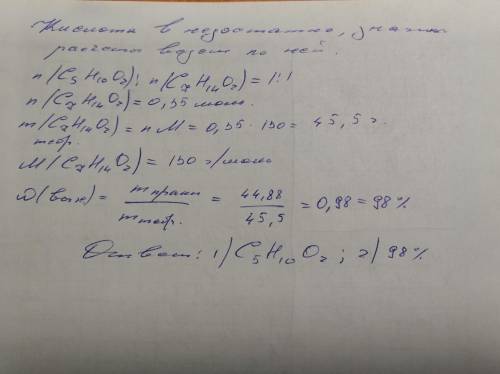 Кислота в недостатке, значит
расчеты ведем по ней.
n(C5H10O2) : n(C7H14O2) = 1:1
n(C7H14O2) = 0,35 моль.
m(C7H14O2) = n·M = 0,35 · 130 = 45,5 г.
теор.
M(C7H14O2) = 130 г/моль
W(вых) = m практ / m теор. = 44,88 / 45,5 = 0,98 = 98%
Ответ: 1) C5H10O2 ; 2) 98%